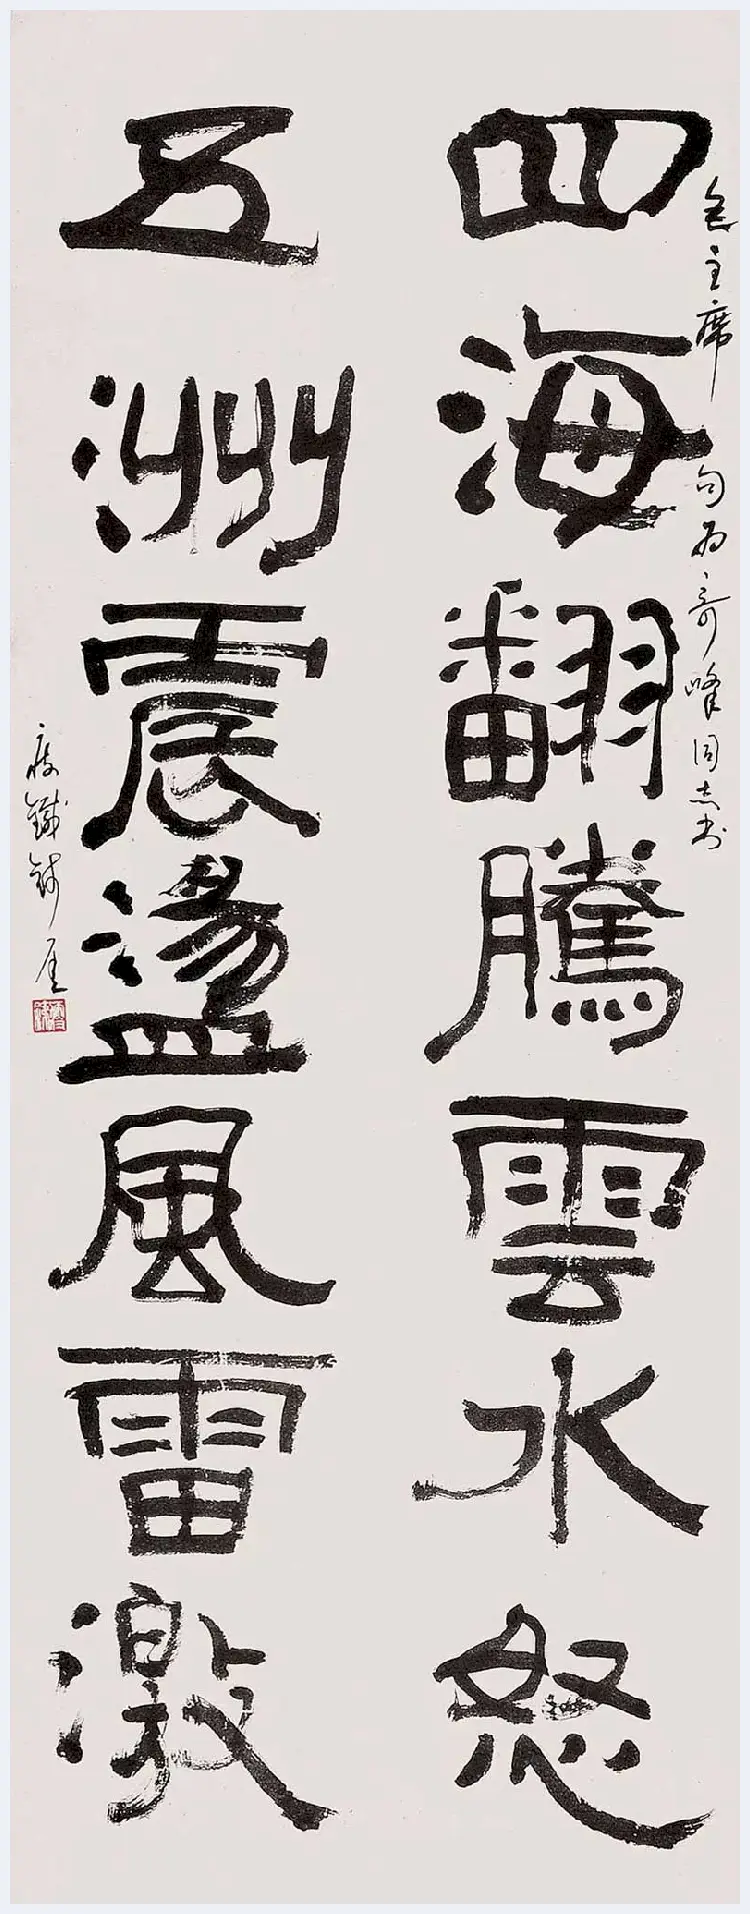 毛主席句为奇峰同志书
四海翻騰雲水怒
五洲震盪風雷激
瘦鐵錢厓